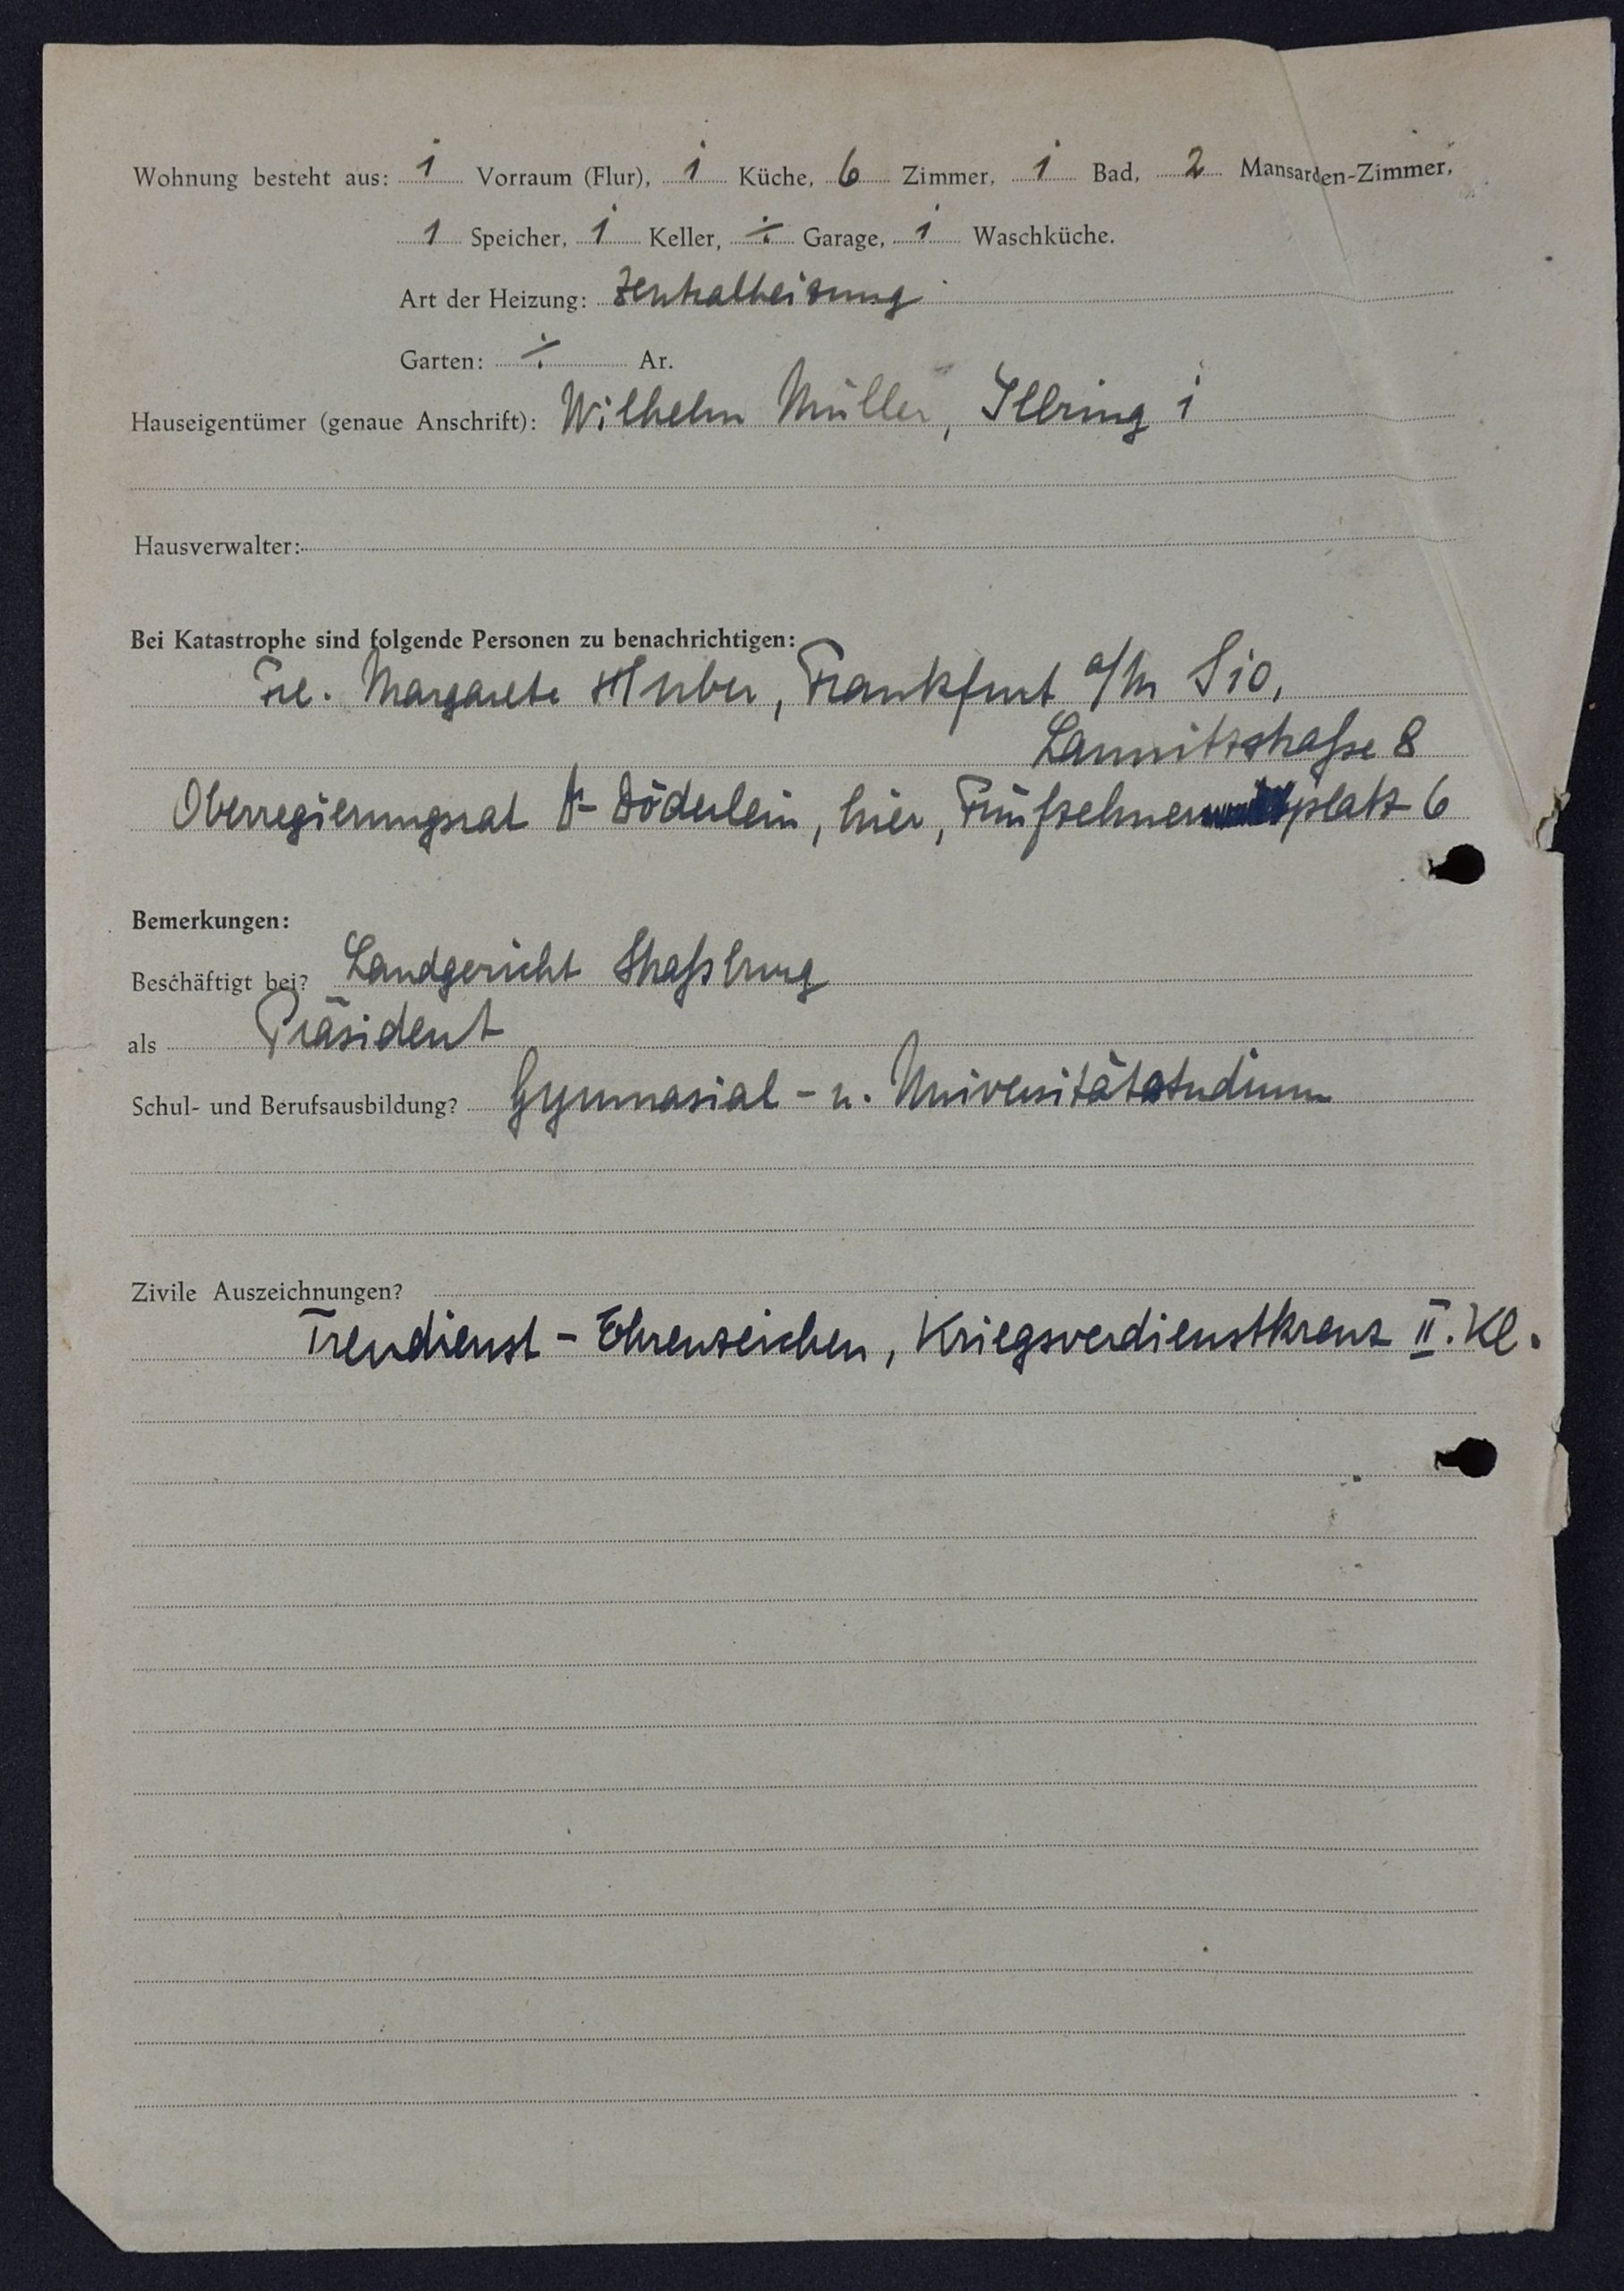 Wohnung besteht aus: 1 Vorraum (Flur), 1 Küche, 6 Zimmer, 1 Bad, 2 Mansarden-Zimmer,
1 Speicher, 1 Keller, ÷ Garage, 1 Waschküche.
Art der Heizung: Zentralheizung
Garten: ÷ Ar.
Hauseigentümer (genaue Anschrift): Wilhelm Müller, Illring 1
Hausverwalter:
Bei Katastrophe sind folgende Personen zu benachrichtigen:
Frl. Margarete Huber, Frankfurt a/M S10,
Lannitzstraße 8
Oberregierungsrat Dr Döderlein, hier, Fünfzehnerplatz 6
Bemerkungen:
Beschäftigt bei? Landgericht Straßburg
als Präsident
Schul- und Berufsausbildung? Gymnasial- u. Universitätsstudium
Zivile Auszeichnungen?
Treudienst-Ehrenzeichen, Kriegsverdienstkreuz II. Kl.